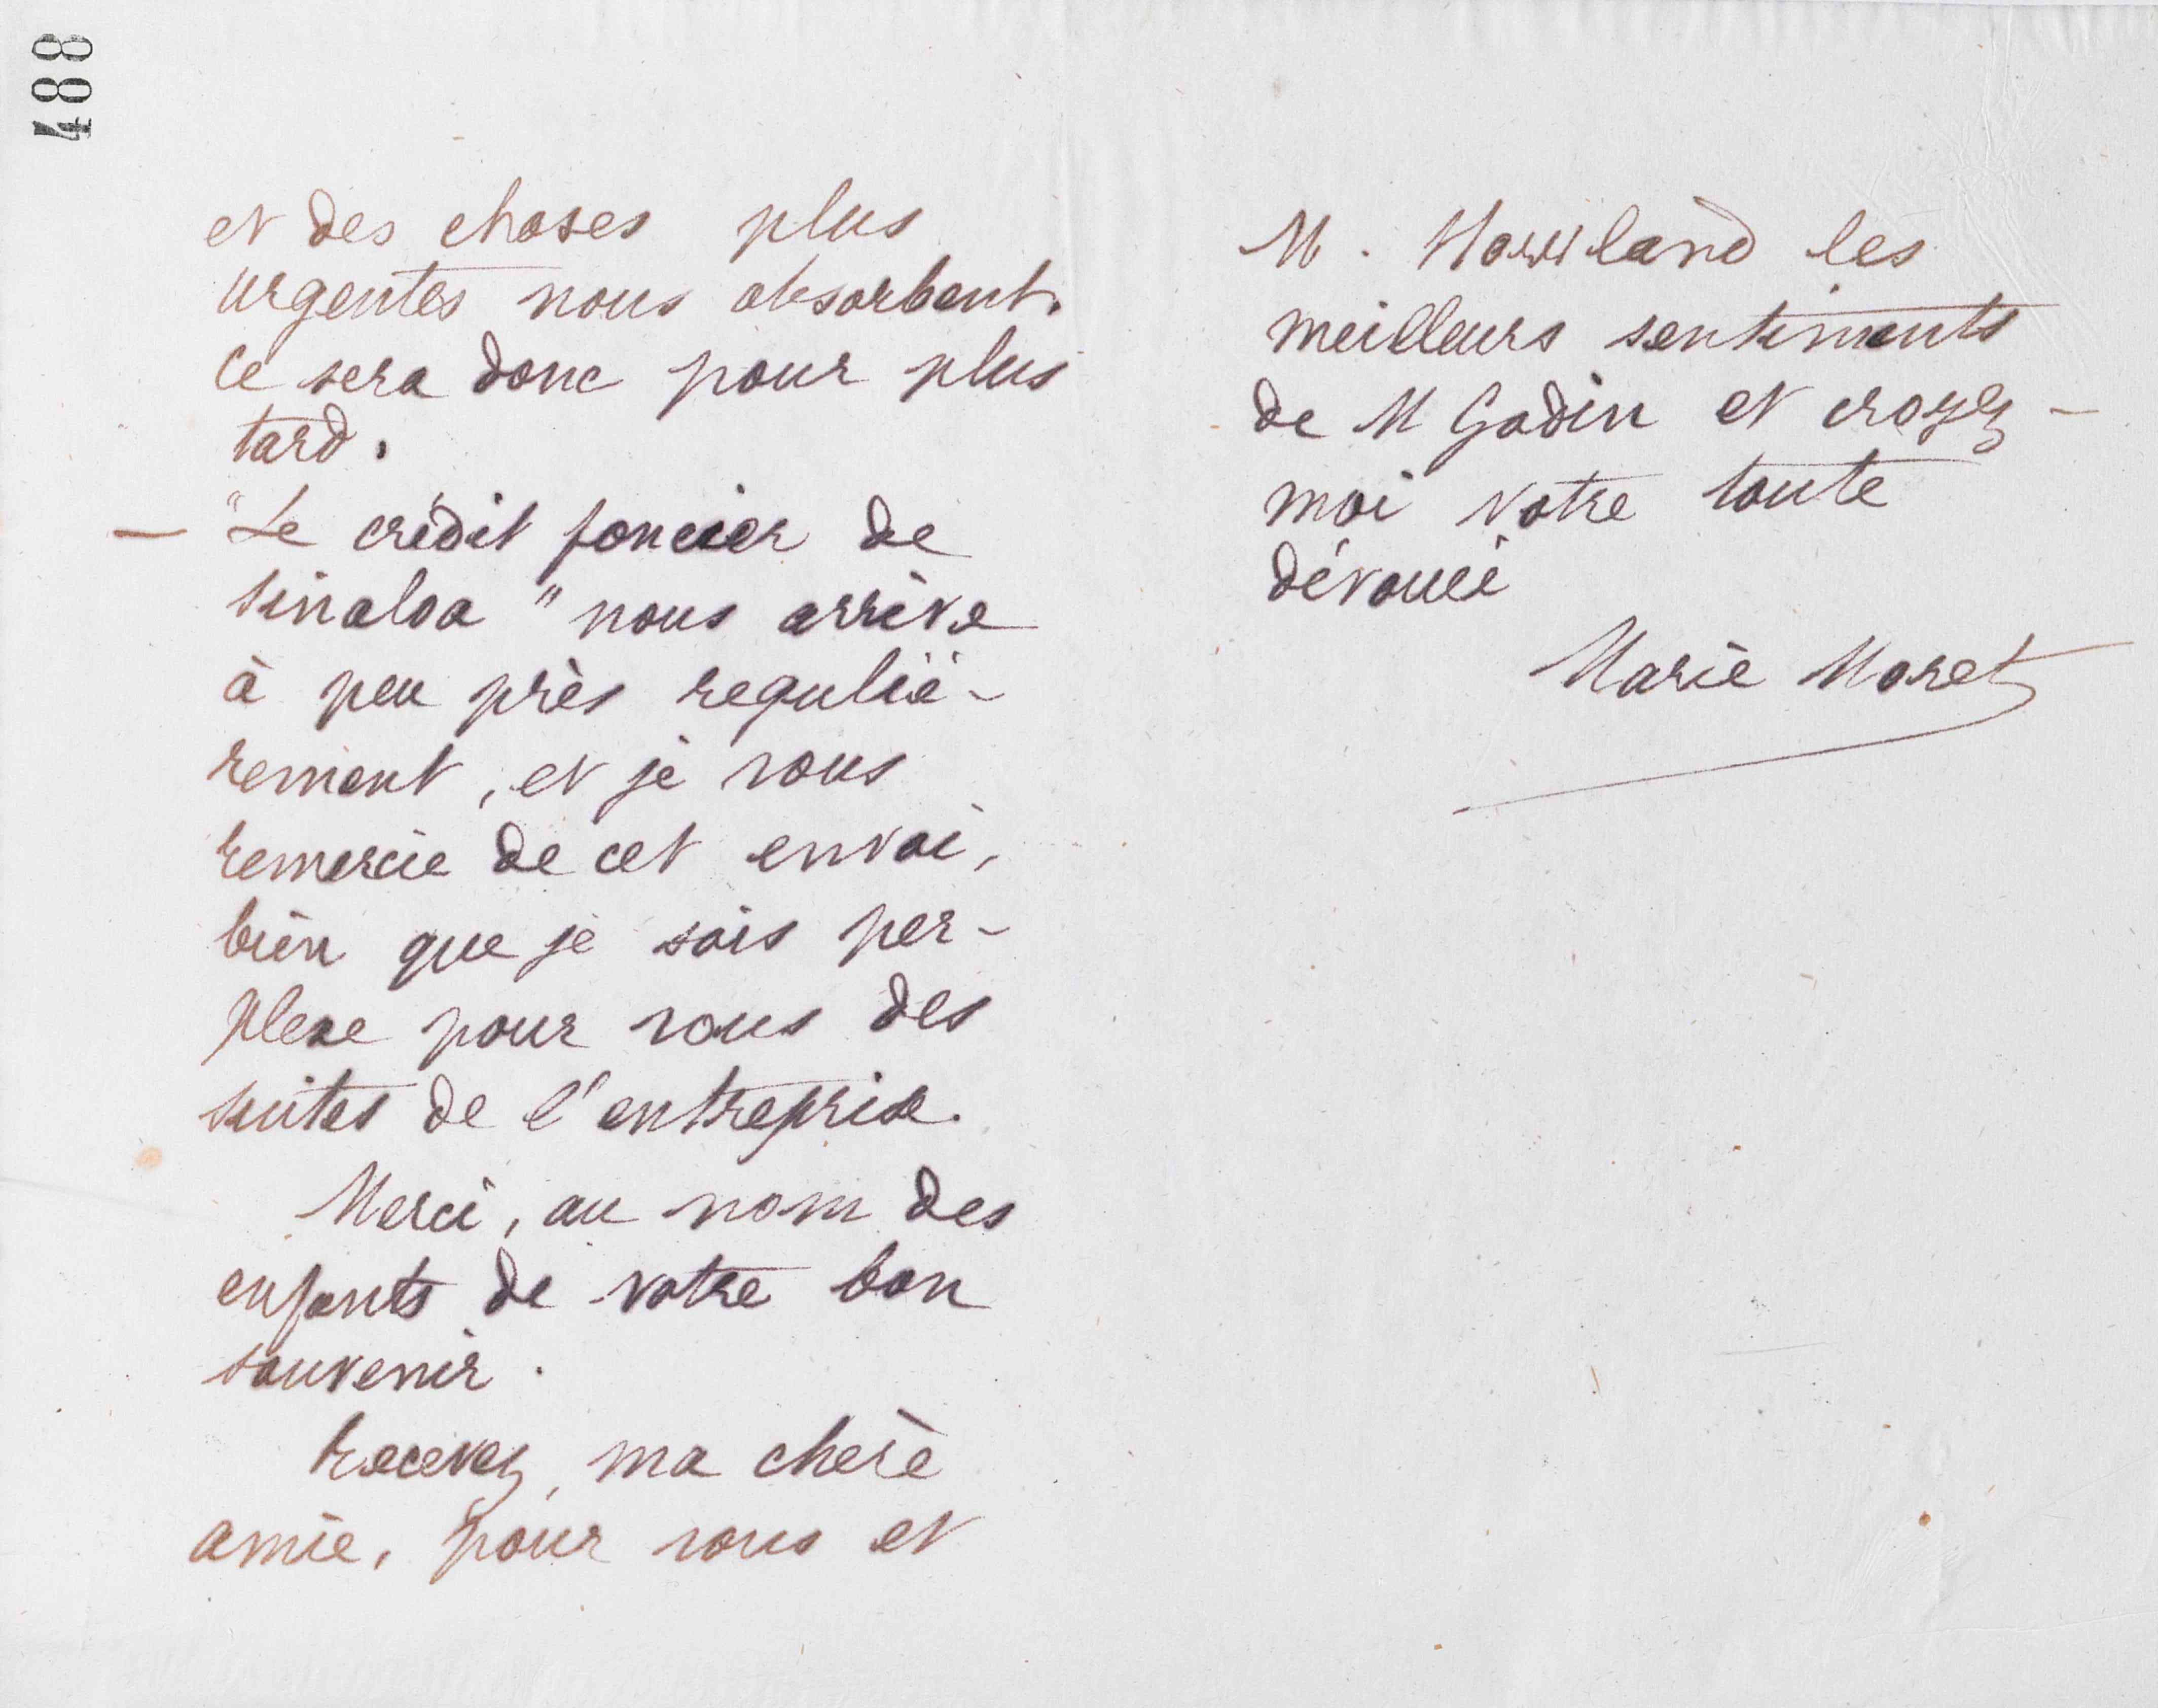 488
et des choses plus
urgentes nous absorbent.
Ce sera donc pour plus
tard.
— "Le crédit foncier de
Sinaloa" nous arrive
à peu près réguliè-
rement, et je vous
remercie de cet envoi,
bien que je sois per-
plexe pour vous des
suites de l'entreprise.
Merci, au nom des
enfants de votre bon
souvenir.
Recevez, ma chère
amie, pour vous et
M. Howland les
meilleurs sentiments
de M Godin et croyez-
moi votre toute
dévouée
Marie Moret